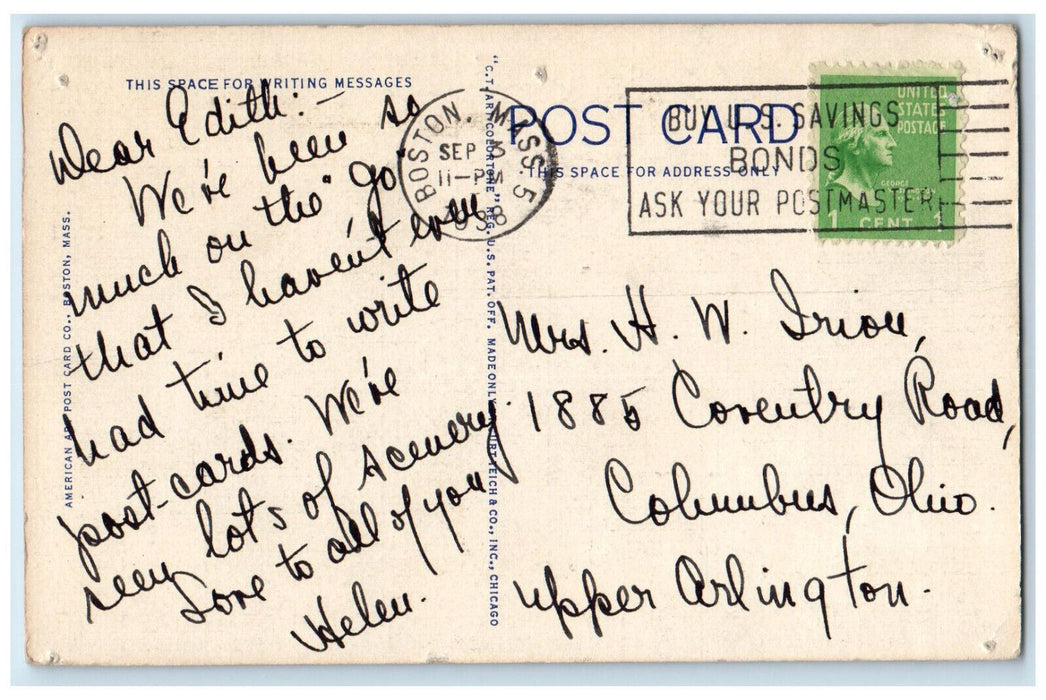 THIS SPACE FOR WRITING MESSAGES
Dear Edith:—
We've been so
much on the "go"
that I haven't even
had time to write
post-cards. We've
seen lots of scenery
Love to all of you
Helen.
AMERICAN ART POST CARD CO., BOSTON, MASS.
"C.T. ART-COLORTONE" REG. U.S. PAT. OFF. MADE ONLY BY CURT TEICH & CO., INC., CHICAGO
POST CARD
THIS SPACE FOR ADDRESS ONLY
BOSTON, MASS. 5
SEP
11-PM
BUY U.S. SAVINGS
BONDS
ASK YOUR POSTMASTER
UNITED
STATES
POSTAGE
GEORGE
WASHINGTON
1 CENT 1
Mrs. H. W. Irion,
1885 Coventry Road,
Columbus, Ohio.
Upper Arlington.